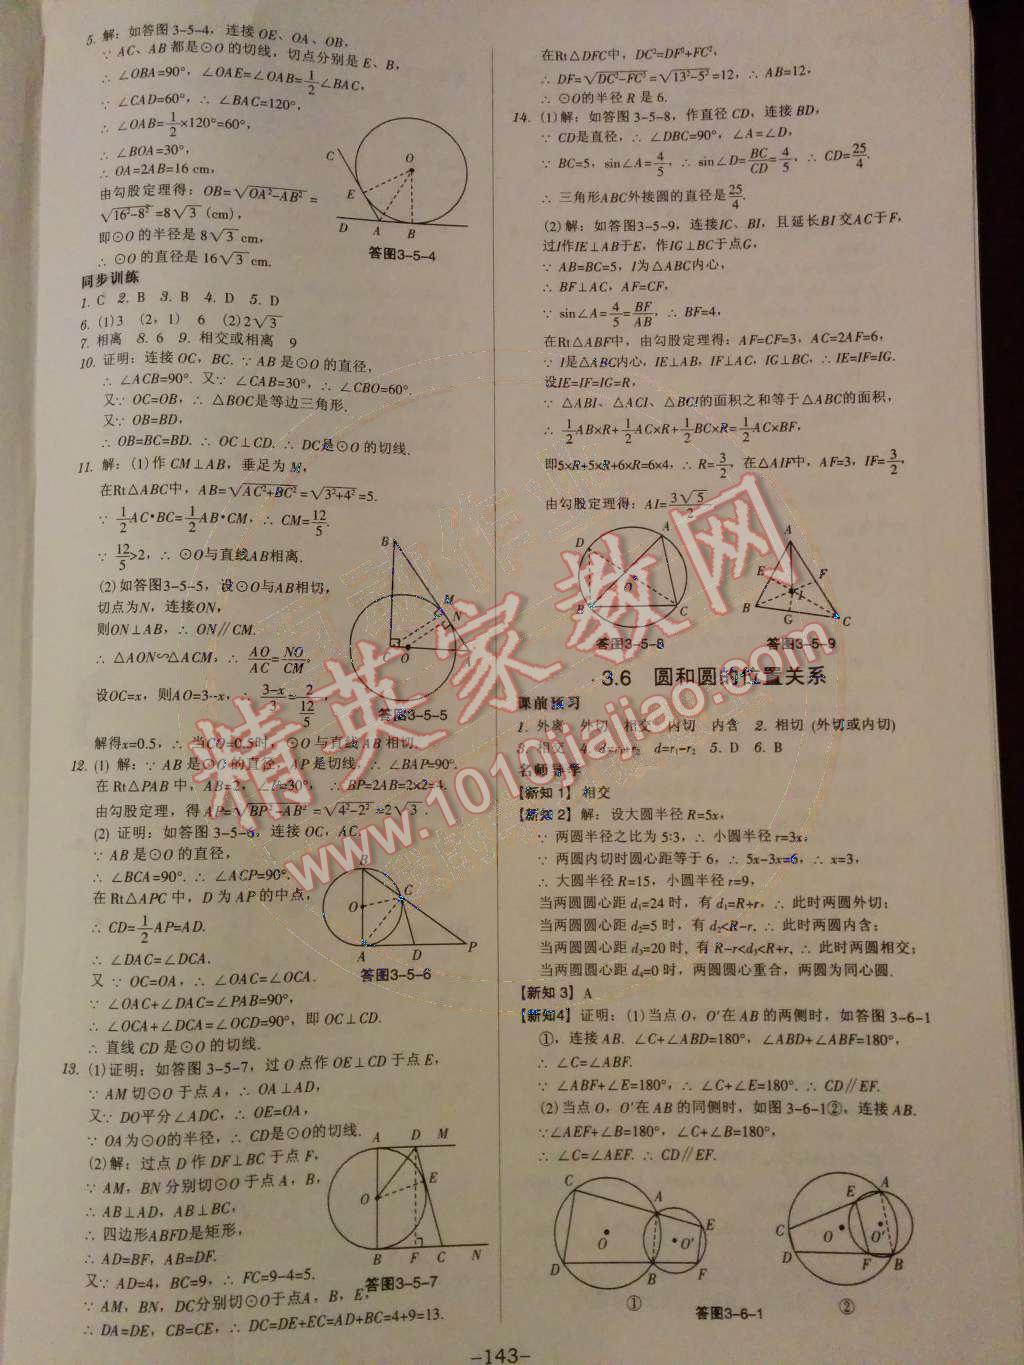 5. 解：如答图3-5-4，连接OE、OA、OB，
∵ AC、AB都是⊙O的切线，切点分别是E、B，
∴ ∠OBA=90°，∠OAE=∠OAB=1/2∠BAC，
∵ ∠CAD=60°，∴ ∠BAC=120°，
∴ ∠OAB=1/2×120°=60°，
∴ ∠BOA=30°，
∴ OA=2AB=16 cm，
由勾股定理得：OB=√(OA²-AB²) =
√(16²-8²)=8√3 (cm)，
即⊙O的半径是8√3 cm，
∴ ⊙O的直径是16√3 cm.
C
O
E
D
A
B
答图3-5-4
同步训练
1. C 2. B 3. B 4. D 5. D
6. (1)3 (2，1) 6 (2)2√3
7. 相离 8. 6 9. 相交或相离 9
10. 证明：连接OC，BC. ∵ AB是⊙O的直径，
∴ ∠ACB=90°. 又∵ ∠CAB=30°，∴ ∠CBO=60°.
又∵ OC=OB，∴ △BOC是等边三角形.
又∵ OB=BD，
∴ OB=BC=BD. ∴ OC⊥CD. ∴ DC是⊙O的切线.
11. 解：(1)作CM⊥AB，垂足为M，
在Rt△ABC中，AB=√(AC²+BC²)=√(3²+4²)=5.
∵ 1/2AC·BC=1/2AB·CM，∴ CM=12/5.
∵ 12/5>2，∴ ⊙O与直线AB相离.
(2)如答图3-5-5，设⊙O与AB相切，
切点为N，连接ON，
则ON⊥AB，∴ ON∥CM.
∴ △AON∽△ACM，∴ AO/AC=NO/CM，
设OC=x，则AO=3-x，∴ (3-x)/3=2/(12/5)，
B
M
N
O
A
答图3-5-5
解得x=0.5，∴ 当CO=0.5时，⊙O与直线AB相切.
12. (1) 解：∵ AB是⊙O的直径，AP是切线，∴ ∠BAP=90°.
在Rt△PAB中，AB=2，∠P=30°，∴ BP=2AB=2×2=4.
由勾股定理，得AP=√(BP²-AB²)=√(4²-2²)=2√3.
(2) 证明：如答图3-5-6，连接OC，AC，
∵ AB是⊙O的直径，
∴ ∠BCA=90°. ∴ ∠ACP=90°.
在Rt△APC中，D为AP的中点，
∴ CD=1/2AP=AD.
∴ ∠DAC=∠DCA.
又∵ OC=OA，∴ ∠OAC=∠OCA.
∵ ∠OAC+∠DAC=∠PAB=90°，
∴ ∠OCA+∠DCA=∠OCD=90°，即OC⊥CD.
∴ 直线CD是⊙O的切线.
B
C
O
A
D
P
答图3-5-6
13. (1)证明：如答图3-5-7，过O点作OE⊥CD于点E，
∵ AM切⊙O于点A，∴ OA⊥AD，
又∵ DO平分∠ADC，∴ OE=OA，
∵ OA为⊙O的半径，∴ CD是⊙O的切线.
(2)解：过点D作DF⊥BC于点F，
∵ AM，BN分别切⊙O于点A，B，
∴ AB⊥AD，AB⊥BC，
∴ 四边形ABFD是矩形，
∴ AD=BF，AB=DF.
又∵ AD=4，BC=9，∴ FC=9-4=5.
∵ AM，BN，DC分别切⊙O于点A，B，E，
∴ DA=DE，CB=CE，∴ DC=DE+EC=AD+BC=4+9=13.
A
D
M
E
O
B
F
C
N
答图3-5-7
在Rt△DFC中，DC²=DF²+FC²，
∴ DF=√(DC²-FC²)=√(13²-5²)=12，∴ AB=12，
∴ ⊙O的半径R是6.
14. (1)解：如答图3-5-8，作直径CD，连接BD，
∵ CD是直径，∴ ∠DBC=90°，∠A=∠D，
∵ BC=5，sin∠A=4/5，∴ sin∠D=BC/CD=4/5，∴ CD=25/4.
∴ 三角形ABC外接圆的直径是25/4.
(2)解：如答图3-5-9，连接IC、BI，且延长BI交AC于F，
过I作IE⊥AB于E，作IG⊥BC于点G，
∵ AB=BC=5，I为△ABC内心，
∴ BF⊥AC，AF=CF，
∵ sin∠A=4/5=BF/AB，∴ BF=4，
在Rt△ABF中，由勾股定理得：AF=CF=3，AC=2AF=6，
∵ I是△ABC内心，IE⊥AB，IF⊥AC，IG⊥BC，∴ IE=IF=IG.
设IE=IF=IG=R，
∵ △ABI、△ACI、△BCI的面积之和等于△ABC的面积，
∴ 1/2AB×R+1/2AC×R+1/2BC×R=1/2AC×BF，
即5×R+5×R+6×R=6×4，∴ R=3/2，在△AIF中，AF=3，IF=3/2，
由勾股定理得：AI=3√5/2.
A
D
O
B
C
答图3-5-8
A
E
F
I
B
G
C
答图3-5-9
3.6 圆和圆的位置关系
课前预习
1. 外离 外切 相交 内切 内含 2. 相切 (外切或内切)
3. 相交 4. d=r₁+r₂ d=r₁-r₂ 5. D 6. B
名师导学
【新知1】 相交
【新知2】 解：设大圆半径R=5x，
∵ 两圆半径之比为5:3，∴ 小圆半径r=3x，
∵ 两圆内切时圆心距等于6，∴ 5x-3x=6，∴ x=3，
∴ 大圆半径R=15，小圆半径r=9，
当两圆圆心距d₁=24时，有d₁=R+r，∴ 此时两圆外切；
当两圆圆心距d₂=5时，有d₂<R-r，∴ 此时两圆内含；
当两圆圆心距d₃=20时，有R-r<d₃<R+r，∴ 此时两圆相交；
当两圆圆心距d₄=0时，两圆圆心重合，两圆为同心圆.
【新知3】 A
【新知4】 证明：(1)当点O，O′在AB的两侧时，如答图3-6-1
①，连接AB. ∠C+∠ABD=180°，∠ABD+∠ABF=180°，
∴ ∠C=∠ABF.
∵ ∠ABF+∠E=180°，∴ ∠C+∠E=180°. ∴ CD∥EF.
(2)当点O，O′在AB的同侧时，如图3-6-1②，连接AB.
∵∠AEF+∠B=180°，∠C+∠B=180°，
∴ ∠C=∠AEF. ∴ CD∥EF.
C
A
E
O
O′
D
B
F
①
E
A
C
O
O′
D
F
B
②
答图3-6-1
-143-
精英家教网
www.1010jiajiao.com